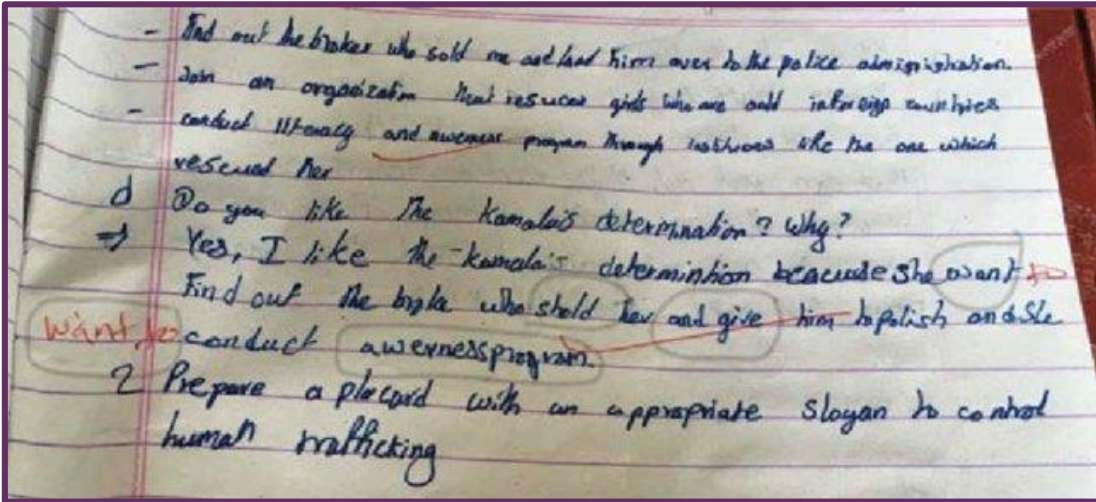 - Find out the broker who sold me and hand him over to the police administration.
- Join an organization that resuces girls who are sold in foreign countries
- conduct literacy and awerness program through like the one which
rescued her
d Do you like The Kamala's determination? Why?
⇒ Yes, I like the Kamala's determintion beacuse she want to
Find out the broke who shold her and give him to polish and She
want to conduct awerness program.
2 Prepare a placard with an appropriate slogan to control
human trafficking